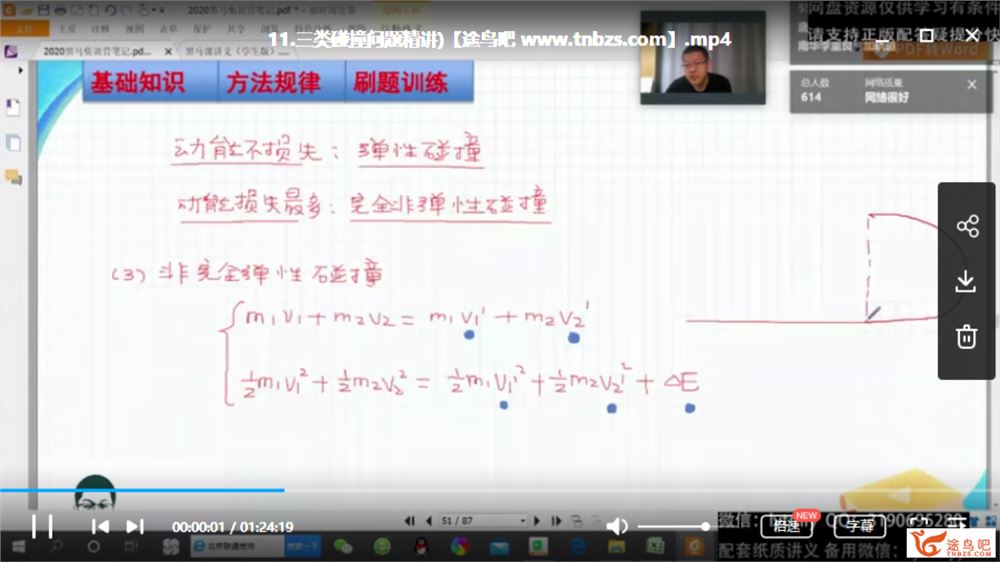 2020黑马集训营笔记.pdf *
11.三类碰撞问题精讲)【途鸟吧 www.tnbzs.com】.mp4
网盘资源仅供学习有条件
请支持正版配套疑提快
2020黑马集训营笔记.pd...
黑马课讲义《学生版》...
基础知识 方法规律 刷题训练
总人数 网络质量
614 网络很好
动能不损失：弹性碰撞
动能损失最多：完全非弹性碰撞
(3) 非完全弹性碰撞
m₁v₁+m₂v₂=m₁v₁'+m₂v₂'
½m₁v₁²+½m₂v₂²=½m₁v₁'²+½m₂v₂'²+ΔE
00:00:01 / 01:24:19
51 / 87
倍速 NEW 字幕
搜索一下
配套纸质讲义 备用微信:
途鸟吧